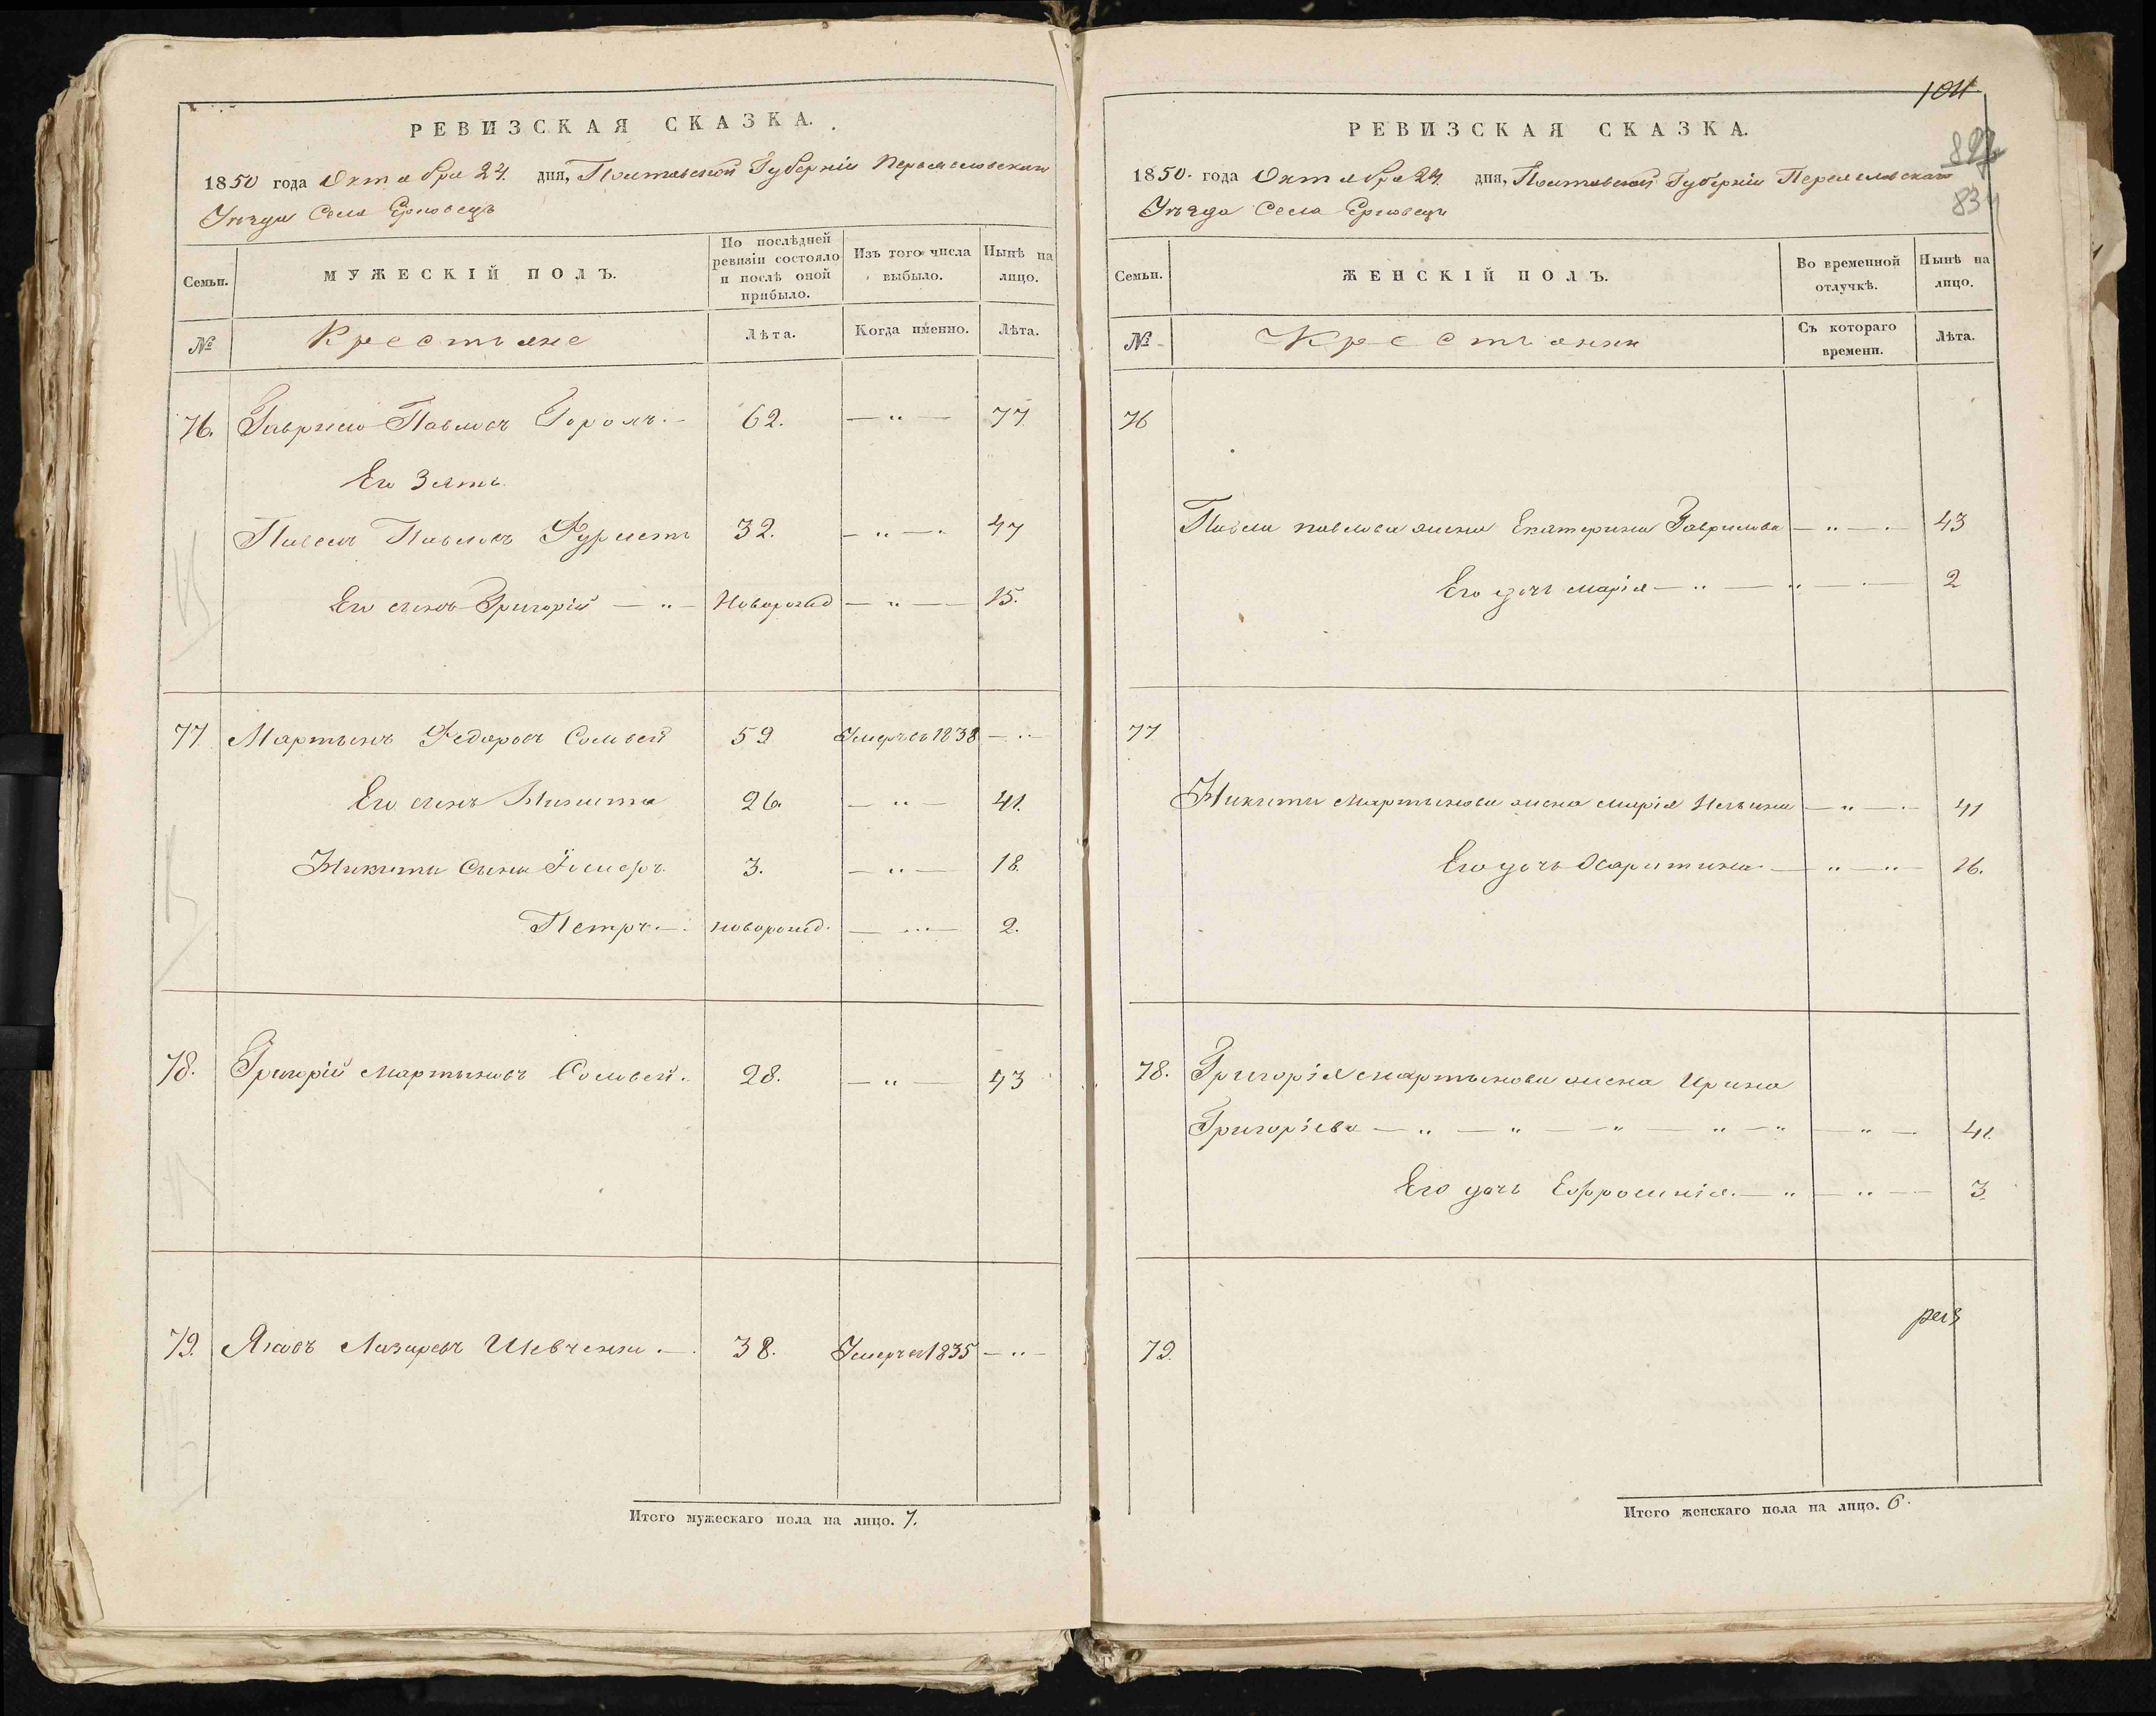 РЕВИЗСКАЯ СКАЗКА.
1850 года Октября 24. дня, Полтавской Губерніи Переяславскаго
Уѣзда Села Ерковецъ
Семьи.
МУЖЕСКІЙ ПОЛЪ.
По послѣдней ревизіи состояло и послѣ оной прибыло.
Изъ того числа выбыло.
Нынѣ на лицо.
№
Крестьяне
Лѣта.
Когда именно.
Лѣта.
76. Гавріилъ Павловъ 62. — " — 77
Его Зять
Павелъ Павловъ 32. — " — 47
Его сынъ Григорій — " — Новорожд — " — 15.
77 Мартынъ Федоровъ Соловей 59 Умеръ въ 1838 — " —
Его сынъ Никита 26. — " — 41.
Никиты Сыны 3. — " — 18.
Петръ — новорожд. — " — 2.
78. Григорій Мартыновъ Соловей. 28. — " — 43
79. Яковъ Лазаревъ Шевченко. — 38. Умеръ въ 1835 — " —
Итого мужескаго пола на лицо. 7.
104
83
РЕВИЗСКАЯ СКАЗКА.
1850. года Октября 24. дня, Полтавской Губерніи Переяславскаго
Уѣзда Села Ерковецъ
Семьи.
ЖЕНСКІЙ ПОЛЪ.
Во временной отлучкѣ.
Нынѣ на лицо.
№
Крестьянки
Съ котораго времени.
Лѣта.
76
Павла Павлова жена Екатерина Гаврилова — " — 43
Его дочь Марія — " — " — 2
77
Никиты Мартынова жена Марія Ильина — " — 41
Его дочь Харитина — " — " — 16.
78. Григорія Мартынова жена Ирина
Григоріева — " — " — " — " — " — " — 41.
Его дочь Ефросинія. — " — " — 3.
79.
Итого женскаго пола на лицо. 6.